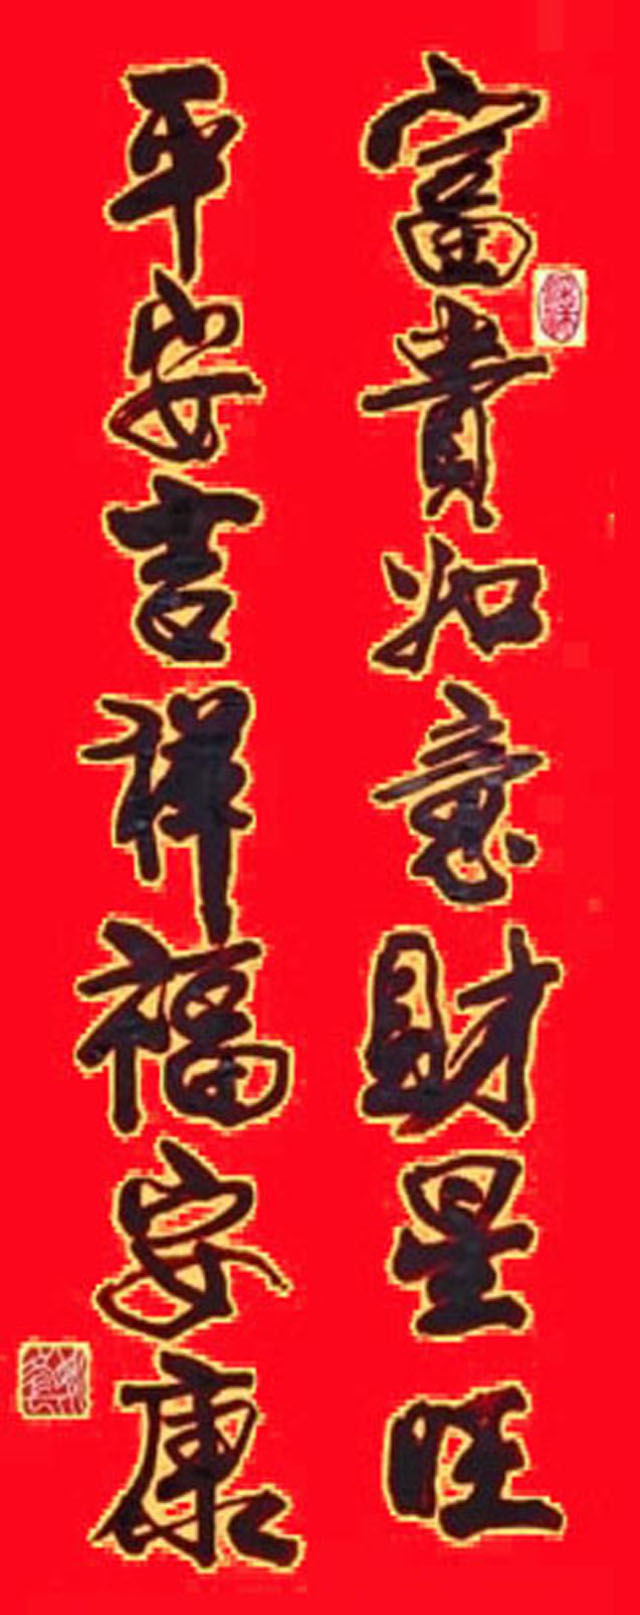 富貴如意財星旺
平安吉祥福安康